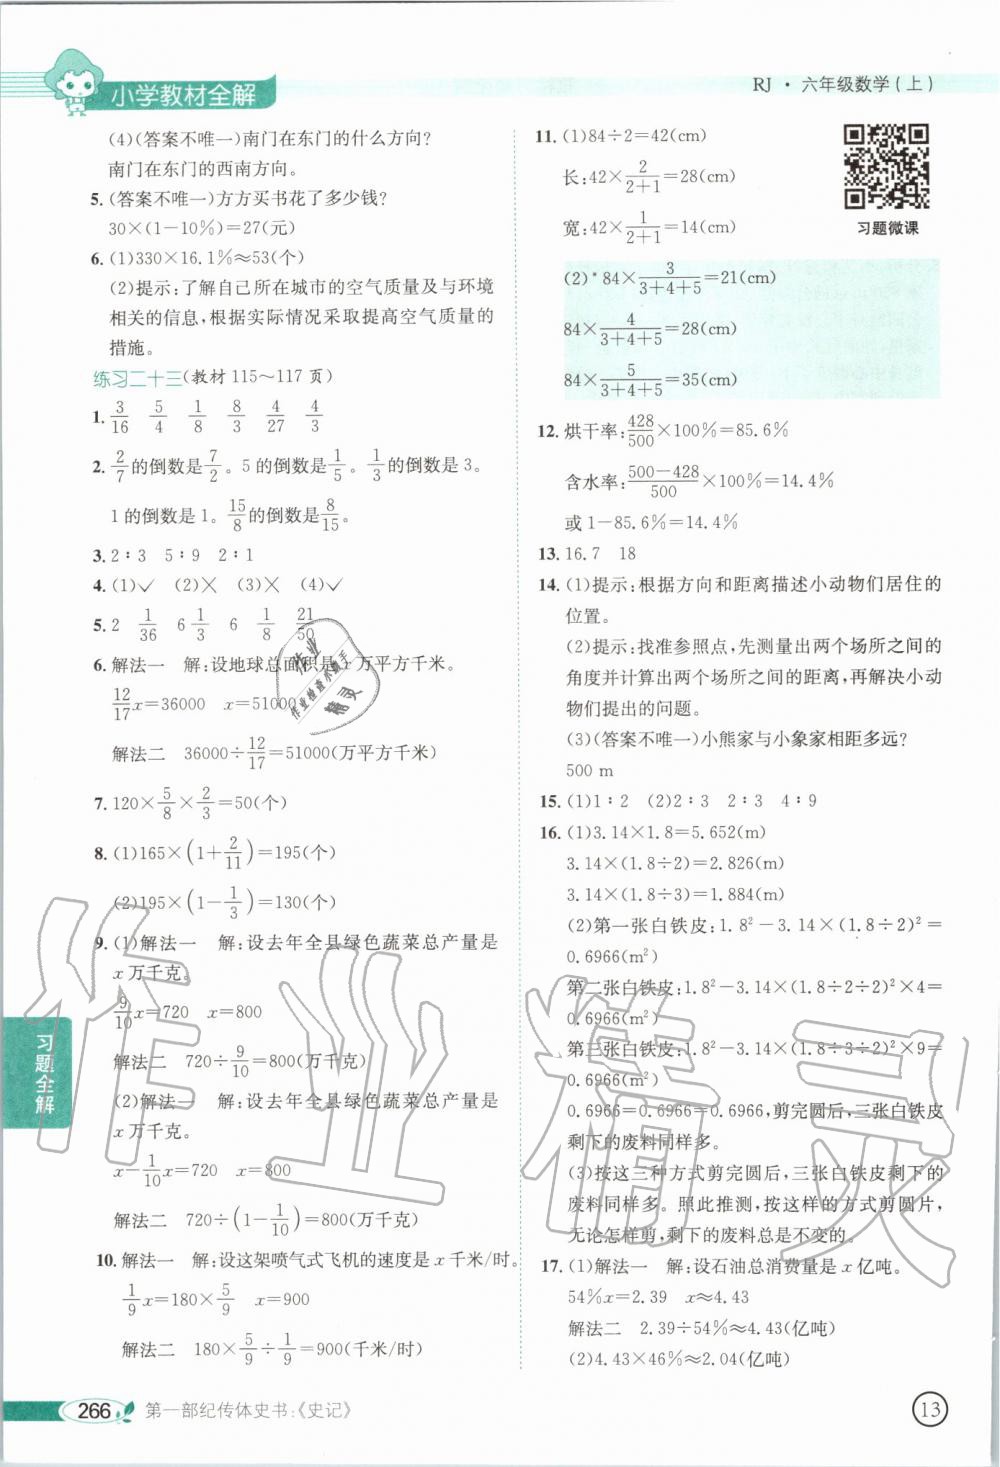 小学教材全解
RJ · 六年级数学(上)
(4)(答案不唯一)南门在东门的什么方向?
南门在东门的西南方向。
5. (答案不唯一)方方买书花了多少钱?
30×(1-10%)=27(元)
6. (1)330×16.1%≈53(个)
(2)提示:了解自己所在城市的空气质量及与环境
相关的信息,根据实际情况采取提高空气质量的
措施。
练习二十三(教材115～117页)
1. 3/16 5/4 1/8 8/3 4/27 4/3
2. 2/7的倒数是7/2。5的倒数是1/5。1/3的倒数是3。
1的倒数是1。15/8的倒数是8/15。
3. 2∶3 5∶9 2∶1
4. (1)✓ (2)✕ (3)✕ (4)✓
5. 2 1/36 6 1/3 6 1/8 21/50
6. 解法一 解:设地球总面积是x万平方千米。
12/17x=36000 x=51000
解法二 36000÷12/17=51000(万平方千米)
7. 120×5/8×2/3=50(个)
8. (1)165×(1+2/11)=195(个)
(2)195×(1-1/3)=130(个)
9. (1)解法一 解:设去年全县绿色蔬菜总产量是
x万千克。
9/10x=720 x=800
解法二 720÷9/10=800(万千克)
(2)解法一 解:设去年全县绿色蔬菜总产量是
x万千克。
x-1/10x=720 x=800
解法二 720÷(1-1/10)=800(万千克)
10. 解法一 解:设这架喷气式飞机的速度是x千米/时。
1/9x=180×5/9 x=900
解法二 180×5/9÷1/9=900(千米/时)
11. (1)84÷2=42(cm)
长:42×2/(2+1)=28(cm)
宽:42×1/(2+1)=14(cm)
习题微课
(2)*84×3/(3+4+5)=21(cm)
84×4/(3+4+5)=28(cm)
84×5/(3+4+5)=35(cm)
12. 烘干率:428/500×100%=85.6%
含水率:(500-428)/500×100%=14.4%
或1-85.6%=14.4%
13. 16.7 18
14. (1)提示:根据方向和距离描述小动物们居住的
位置。
(2)提示:找准参照点,先测量出两个场所之间的
角度并计算出两个场所之间的距离,再解决小动
物们提出的问题。
(3)(答案不唯一)小熊家与小象家相距多远?
500 m
15. (1)1∶2 (2)2∶3 2∶3 4∶9
16. (1)3.14×1.8=5.652(m)
3.14×(1.8÷2)=2.826(m)
3.14×(1.8÷3)=1.884(m)
(2)第一张白铁皮:1.8²-3.14×(1.8÷2)²=
0.6966(m²)
第二张白铁皮:1.8²-3.14×(1.8÷2÷2)²×4=
0.6966(m²)
第三张白铁皮:1.8²-3.14×(1.8÷3÷2)²×9=
0.6966(m²)
0.6966=0.6966=0.6966,剪完圆后,三张白铁皮
剩下的废料同样多。
(3)按这三种方式剪完圆后,三张白铁皮剩下的
废料同样多。照此推测,按这样的方式剪圆片,
无论怎样剪,剩下的废料总是不变的。
17. (1)解法一 解:设石油总消费量是x亿吨。
54%x=2.39 x≈4.43
解法二 2.39÷54%≈4.43(亿吨)
(2)4.43×46%≈2.04(亿吨)
习题全解
作业精灵
作业
作业检查小能手
精灵
266
第一部纪传体史书:《史记》
13